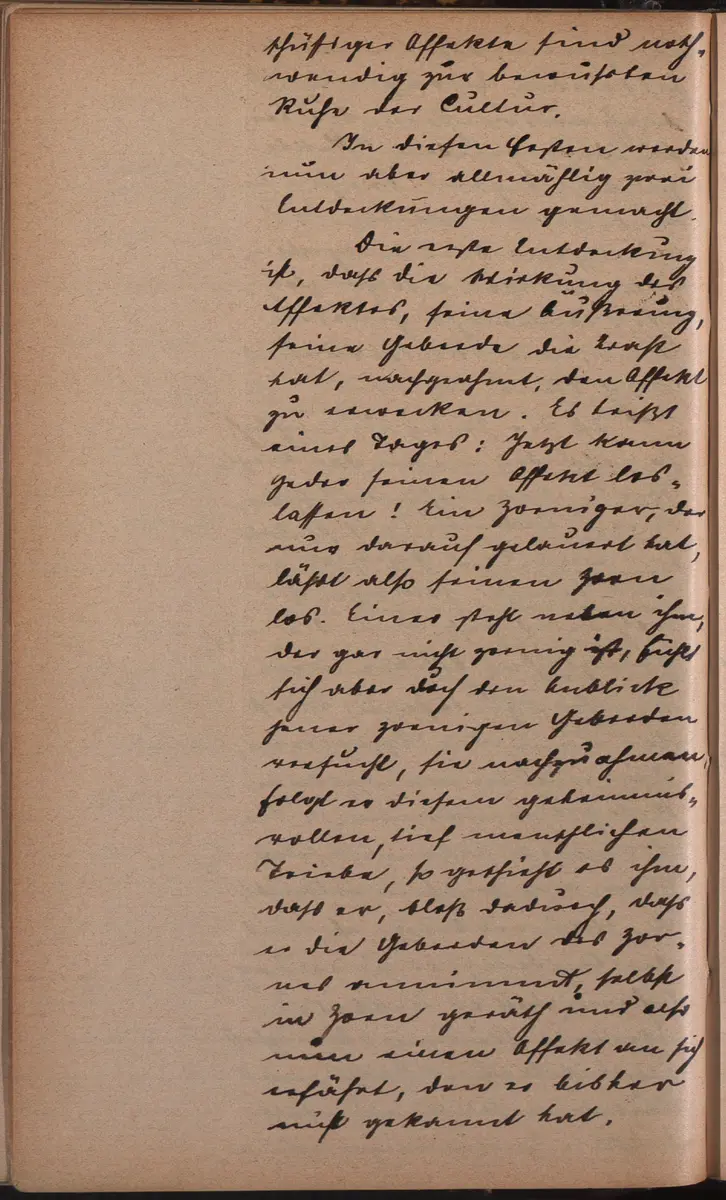 schüssiger Affekte sind noth-
wendig zur bewußten
Ruhe der Cultur.
In diesen Festen werden
nun aber allmählig zwei
Entdeckungen gemacht.
Die erste Entdeckung
ist, dass die Wirkung des
Affektes, seine Äußerung,
seine Geberde die Kraft
hat, nachgeahmt, den Affekt
zu erwecken. Es heißt
eines Tages: Jetzt kann
Jeder seinen Affekt los-
lassen! Ein Zorniger, der
nur darauf gelauert hat,
läßt also seinen Zorn
los. Einer steht neben ihm,
der gar nicht zornig ist, fühlt
sich aber durch den Anblick
jener zornigen Geberden
versucht, sie nachzuahmen,
folgt er diesem geheimnis-
vollen, tief menschlichen
Triebe, so geschieht es ihm,
dass er, bloß dadurch, dass
er die Geberden des Zor-
nes annimmt, selbst
in Zorn geräth und also
nun einen Affekt an sich
erfährt, den er bisher
nicht gekannt hat.